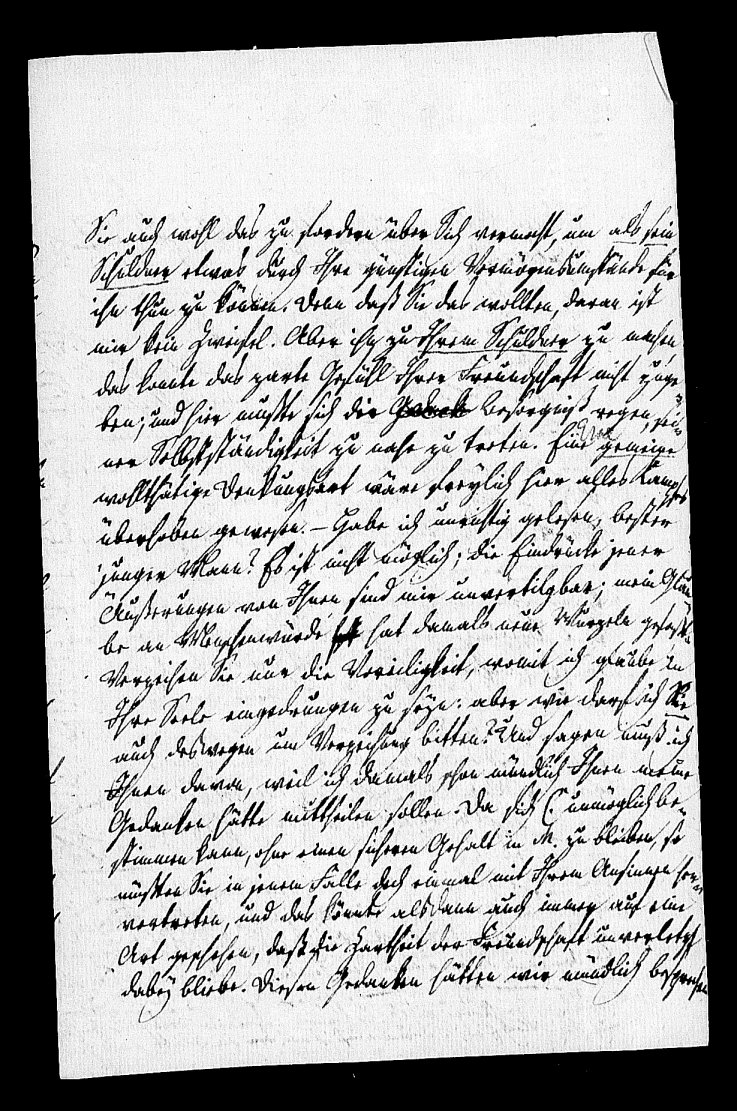 Sie auch wohl das zu fordern über Sich vermocht, um als sein
Schuldner etwas durch Ihre günstigen Vermögensumstände für
ihn thun zu können. Denn daß Sie das wollten, daran ist
mir kein Zweifel. Aber ihn zu Ihrem Schuldner zu machen,
das konnte das zarte Gefühl Ihrer Freundschaft nicht zuge-
ben; und hier mußte sich die Besorgniß regen, sei-
ner Selbstständigkeit zu nahe zu treten. Eine gemeine
wohlthätige Denkungsart wäre freylich hier alles Kampfes
überhoben gewesen. – Habe ich unrichtig gelesen, bester
junger Mann? Es ist nicht möglich; die Eindrücke jener
Äußerungen von Ihnen sind mir unvertilgbar; mein Glau-
be an Menschenwürde hat damals neue Wurzeln gefaßt.
Verzeihen Sie nur die Voreiligkeit, womit ich glaube in
Ihre Seele eingedrungen zu seyn: aber wie darf ich Sie
auch deswegen um Verzeihung bitten? Und sagen muß ich
Ihnen davon, weil ich damals schon mündlich Ihnen meine
Gedanken hätte mittheilen sollen. Da sich C. unmöglich be-
stimmen kann, ohne einen sicheren Gehalt in M. zu bleiben, so
müßten Sie in jenem Falle doch einmal mit Ihrem Ansinnen her-
vortreten, und das könnte alsdann auch immer auf eine
Art geschehen, daß die Zartheit der Freundschaft unverletzt
dabey bliebe. Diesen Gedanken hätten wir mündlich besprechen